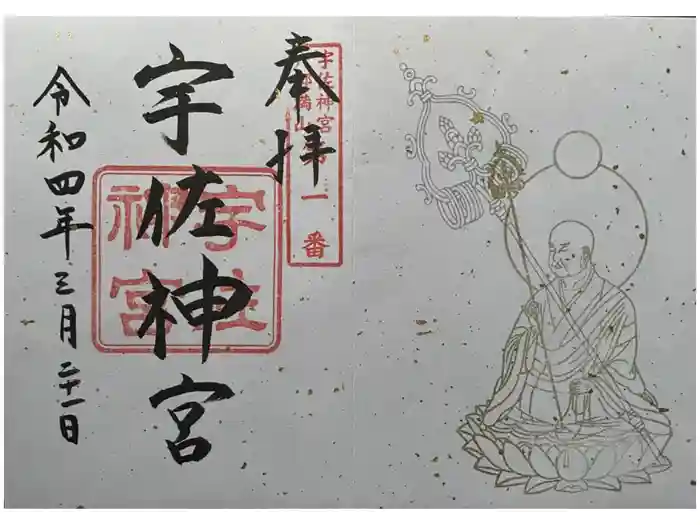 奉拝
宇佐神宮
満山
一番
宇佐神宮
宇佐神宮
令和四年三月二十一日